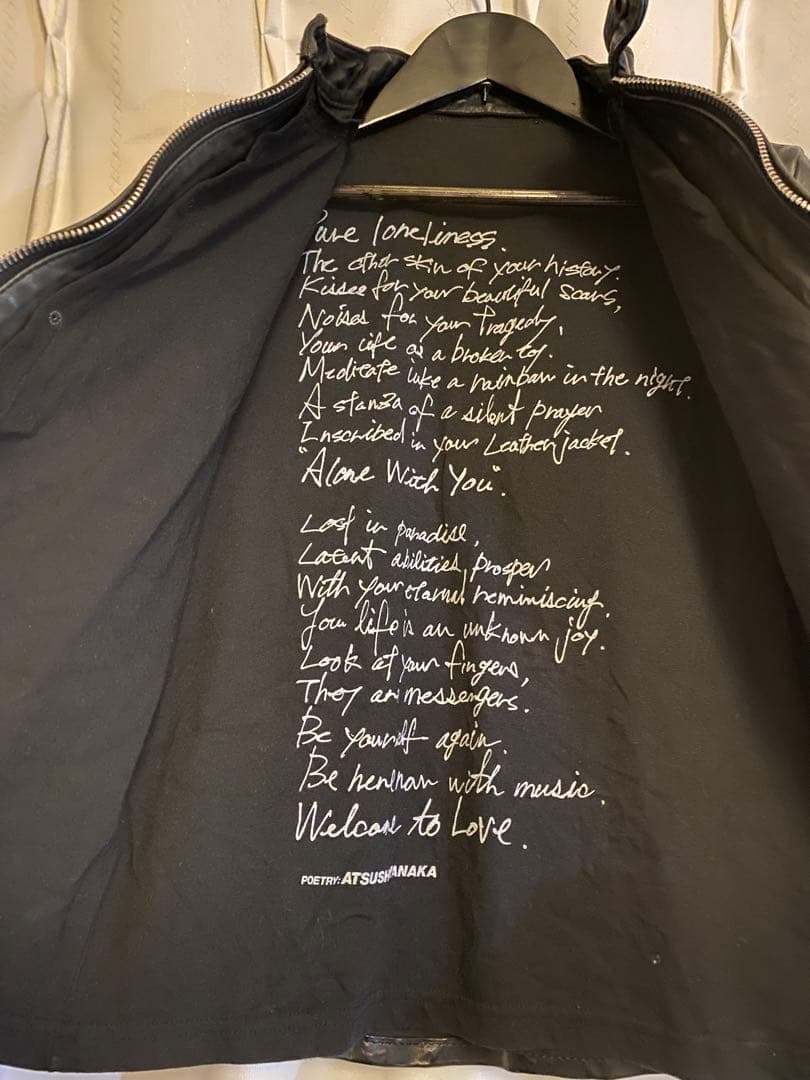 Pure loneliness.
The other skin of your history.
Kisses for your beautiful scars,
Noises for your tragedy,
Your life as a broken toy.
Medicate like a rainbow in the night.
A stanza of a silent prayer
Inscribed in your Leather jacket.
"Alone With You".
Lost in paradise,
Latent abilities prosper
With your eternal reminiscing.
Your life is an unknown joy.
Look at your fingers,
They are messengers.
Be yourself again.
Be with music.
Welcome to Love.
POETRY: ATSUSHI TANAKA